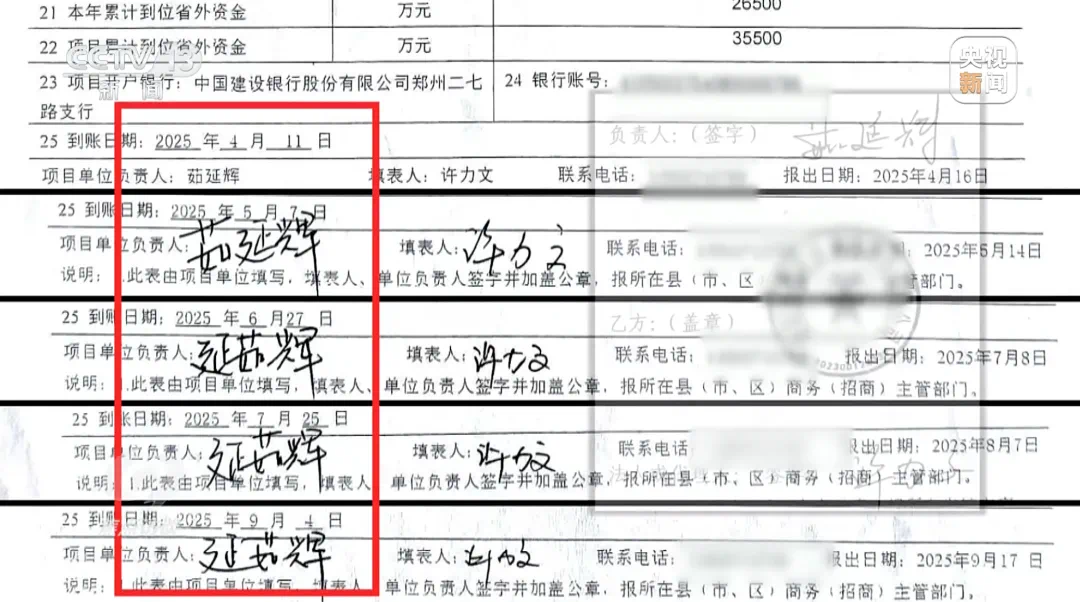 21 本年累计到位省外资金 万元 26500
22 项目累计到位省外资金 万元 35500
CCTV 13
新闻
央视
新闻
23 项目开户银行：中国建设银行股份有限公司郑州二七
路支行
24 银行账号：
25 到账日期：2025 年 4 月 11 日
负责人：（签字） 茹延辉
项目单位负责人：茹延辉 填表人：许力文 联系电话： 报出日期：2025年4月16日
25 到账日期：2025 年 5 月 7 日
项目单位负责人：茹延辉 填表人：许力文 联系电话： 2025年5月14日
说明：1.此表由项目单位填写，填表人、单位负责人签字并加盖公章，报所在县（市、区） 主管部门。
25 到账日期：2025 年 6 月 27 日
乙方：（盖章）
项目单位负责人：延茹辉 填表人：许力文 联系电话： 报出日期：2025年7月8日
说明：1.此表由项目单位填写，填表人、单位负责人签字并加盖公章，报所在县（市、区）商务（招商）主管部门。
25 到账日期：2025 年 7 月 25 日
项目单位负责人：延茹辉 填表人：许力文 联系电话： 报出日期：2025年8月7日
说明：1.此表由项目单位填写，填表人、单位负责人签字并加盖公章，报所在县（市、区）商务（招商）主管部门。
25 到账日期：2025 年 9 月 4 日
项目单位负责人：延茹辉 填表人：许力文 联系电话： 报出日期：2025年9月17日
说明：1.此表由项目单位填写，填表人、单位负责人签字并加盖公章，报所在县（市、区）商务（招商）主管部门。